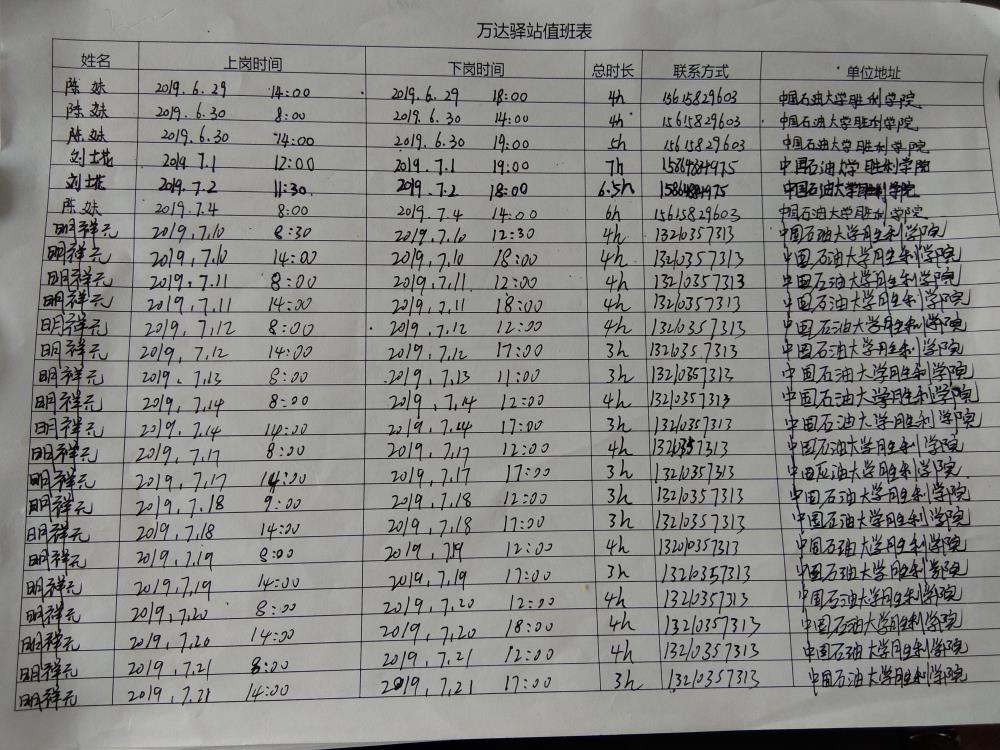 万达驿站值班表
姓名 上岗时间 下岗时间 总时长 联系方式 单位地址
陈妹 2019.6.29 14:00 2019.6.29 18:00 4h 15615829603 中国石油大学胜利学院
陈妹 2019.6.30 8:00 2019.6.30 14:00 4h 15615829603 中国石油大学胜利学院
陈妹 2019.6.30 14:00 2019.6.30 19:00 5h 15615829603 中国石油大学胜利学院
2019.7.1 12:00 2019.7.1 19:00 7h 中国石油大学胜利学院
2019.7.2 11:30 2019.7.2 18:00 6.5h 中国石油大学胜利学院
陈妹 2019.7.4 8:00 2019.7.4 14:00 6h 15615829603 中国石油大学胜利学院
明祥元 2019,7,10 8:30 2019,7,10 12:30 4h 13210357313 中国石油大学胜利学院
明祥元 2019,7,10 14:00 2019,7,10 18:00 4h 13210357313 中国石油大学胜利学院
明祥元 2019,7,11 8:00 2019,7,11 12:00 4h 13210357313 中国石油大学胜利学院
明祥元 2019,7,11 14:00 2019,7,11 18:00 4h 13210357313 中国石油大学胜利学院
明祥元 2019,7,12 8:00 2019,7,12 12:00 4h 13210357313 中国石油大学胜利学院
明祥元 2019,7,12 14:00 2019,7,12 17:00 3h 13210357313 中国石油大学胜利学院
明祥元 2019,7,13 8:00 2019,7,13 11:00 3h 13210357313 中国石油大学胜利学院
明祥元 2019,7,14 8:00 2019,7,14 12:00 4h 13210357313 中国石油大学胜利学院
明祥元 2019,7,14 14:00 2019,7,14 17:00 3h 13210357313 中国石油大学胜利学院
明祥元 2019,7,17 8:00 2019,7,17 12:00 4h 13210357313 中国石油大学胜利学院
明祥元 2019,7,17 14:00 2019,7,17 17:00 3h 13210357313 中国石油大学胜利学院
明祥元 2019,7,18 9:00 2019,7,18 12:00 3h 13210357313 中国石油大学胜利学院
明祥元 2019,7,18 14:00 2019,7,18 17:00 3h 13210357313 中国石油大学胜利学院
明祥元 2019,7,19 8:00 2019,7,19 12:00 4h 13210357313 中国石油大学胜利学院
明祥元 2019,7,19 14:00 2019,7,19 17:00 3h 13210357313 中国石油大学胜利学院
明祥元 2019,7,20 8:00 2019,7,20 12:00 4h 13210357313 中国石油大学胜利学院
明祥元 2019,7,20 14:00 2019,7,20 18:00 4h 13210357313 中国石油大学胜利学院
明祥元 2019,7,21 8:00 2019,7,21 12:00 4h 13210357313 中国石油大学胜利学院
明祥元 2019,7,21 14:00 2019,7,21 17:00 3h 13210357313 中国石油大学胜利学院